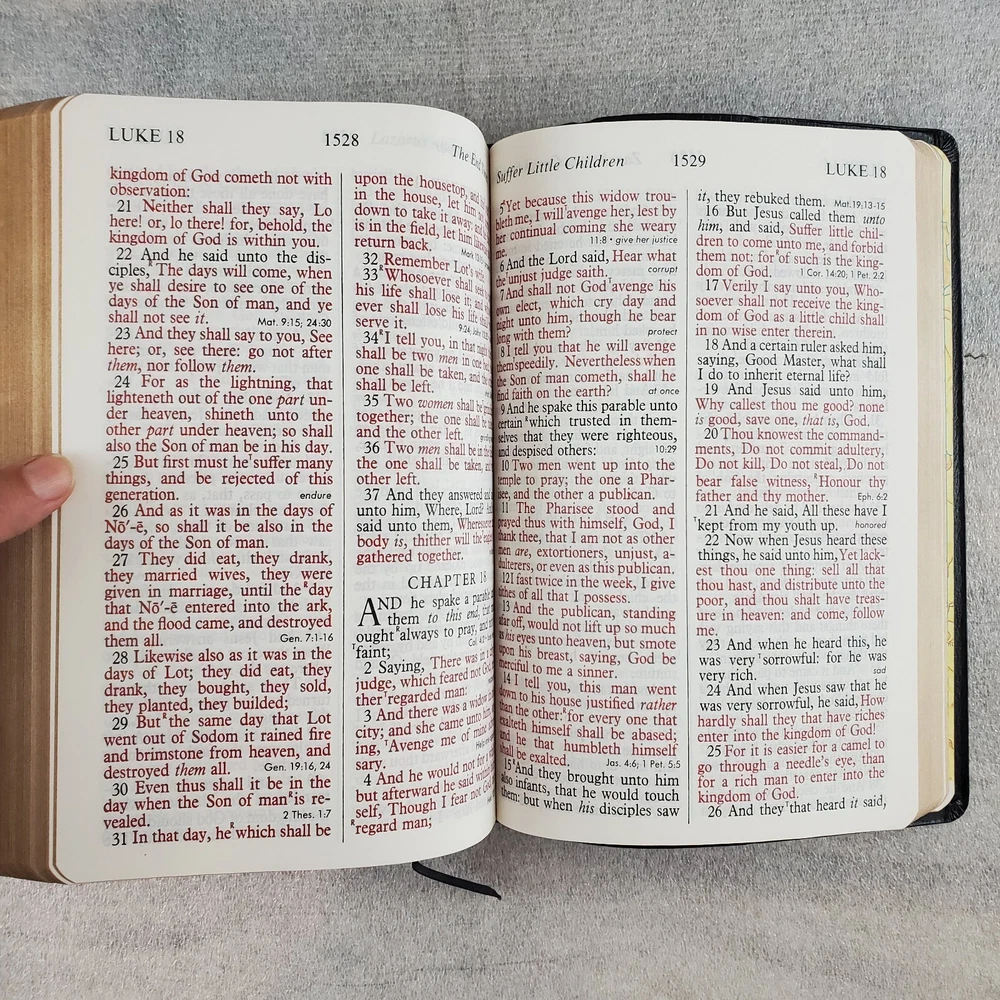 LUKE 18
1528
The End
kingdom of God cometh not with
observation:
21 Neither shall they say, Lo
here! or, lo there! for, behold, the
kingdom of God is within you.
22 And he said unto the dis-
ciples, R The days will come, when
ye shall desire to see one of the
days of the Son of man, and ye
shall not see it. Mat. 9:15; 24:30
23 And they shall say to you, See
here; or, see there: go not after
them, nor follow them.
24 For as the lightning, that
lighteneth out of the one part un-
der heaven, shineth unto the
other part under heaven; so shall
also the Son of man be in his day.
25 But first must he T suffer many
things, and be rejected of this
generation. endure
26 And as it was in the days of
Nō′-ē, so shall it be also in the
days of the Son of man.
27 They did eat, they drank,
they married wives, they were
given in marriage, until the R day
that Nō′-ē entered into the ark,
and the flood came, and destroyed
them all. Gen. 7:1-16
28 Likewise also as it was in the
days of Lot; they did eat, they
drank, they bought, they sold,
they planted, they builded;
29 But R the same day that Lot
went out of Sodom it rained fire
and brimstone from heaven, and
destroyed them all. Gen. 19:16, 24
30 Even thus shall it be in the
day when the Son of man R is re-
vealed. 2 Thes. 1:7
31 In that day, he R which shall be
upon the housetop, and
in the house, let him
down to take it away: and
is in the field, let him
return back. Mark
32 Remember Lot's
33 R Whosoever shall
his life shall lose it; and
ever shall lose his life
serve it. 9:24; John
34 R I tell you, in that
shall be two men in one
one shall be taken, and the
shall be left.
35 Two women shall be
together; the one shall be
and the other left.
36 Two men shall be in the
the one shall be taken, and
other left.
37 And they answered and
unto him, Where, Lord?
said unto them, Wheresoever
body is, thither will the
gathered together.
CHAPTER 18
AND he spake a parable
them to this end, that
ought R always to pray, and
T faint; Col. 4:2
2 Saying, There was in
judge, which feared not God,
ther T regarded man:
3 And there was a widow in
city; and she came unto him,
ing, T Avenge me of mine
sary.
4 And he would not for
but afterward he said within
self, Though I fear not God,
R regard man;
Suffer Little Children
1529
LUKE 18
5 R Yet because this widow trou-
bleth me, I will T avenge her, lest by
her continual coming she weary
me. 11:8 • give her justice
6 And the Lord said, Hear what
the T unjust judge saith. corrupt
7 And shall not God T avenge his
own elect, which cry day and
night unto him, though he bear
long with them? protect
8 I tell you that he will avenge
them T speedily. Nevertheless when
the Son of man cometh, shall he
find faith on the earth? at once
9 And he spake this parable unto
certain R which trusted in them-
selves that they were righteous,
and despised others: 10:29
10 Two men went up into the
temple to pray; the one a Phar-
isee, and the other a publican.
11 The Pharisee stood and
prayed thus with himself, God, I
thank thee, that I am not as other
men are, extortioners, unjust, a-
dulterers, or even as this publican.
12 I fast twice in the week, I give
tithes of all that I possess.
13 And the publican, standing
afar off, would not lift up so much
as his eyes unto heaven, but smote
upon his breast, saying, God be
merciful to me a sinner.
14 I tell you, this man went
down to his house justified rather
than the other: R for every one that
exalteth himself shall be abased;
and he that humbleth himself
shall be exalted. Jas. 4:6; 1 Pet. 5:5
15 R And they brought unto him
also infants, that he would touch
them: but when his disciples saw
it, they rebuked them. Mat.19:13-15
16 But Jesus called them unto
him, and said, Suffer little chil-
dren to come unto me, and forbid
them not: for R of such is the king-
dom of God. 1 Cor. 14:20; 1 Pet. 2:2
17 Verily I say unto you, Who-
soever shall not receive the king-
dom of God as a little child shall
in no wise enter therein.
18 And a certain ruler asked him,
saying, Good Master, what shall
I do to inherit eternal life?
19 And Jesus said unto him,
Why callest thou me good? none
is good, save one, that is, God.
20 Thou knowest the command-
ments, Do not commit adultery,
Do not kill, Do not steal, Do not
bear false witness, R Honour thy
father and thy mother. Eph. 6:2
21 And he said, All these have I
T kept from my youth up. honored
22 Now when Jesus heard these
things, he said unto him, Yet lack-
est thou one thing: sell all that
thou hast, and distribute unto the
poor, and thou shalt have treas-
ure in heaven: and come, follow
me.
23 And when he heard this, he
was very T sorrowful: for he was
very rich. sad
24 And when Jesus saw that he
was very sorrowful, he said, How
hardly shall they that have riches
enter into the kingdom of God!
25 For it is easier for a camel to
go through a needle's eye, than
for a rich man to enter into the
kingdom of God.
26 And they T that heard it said,